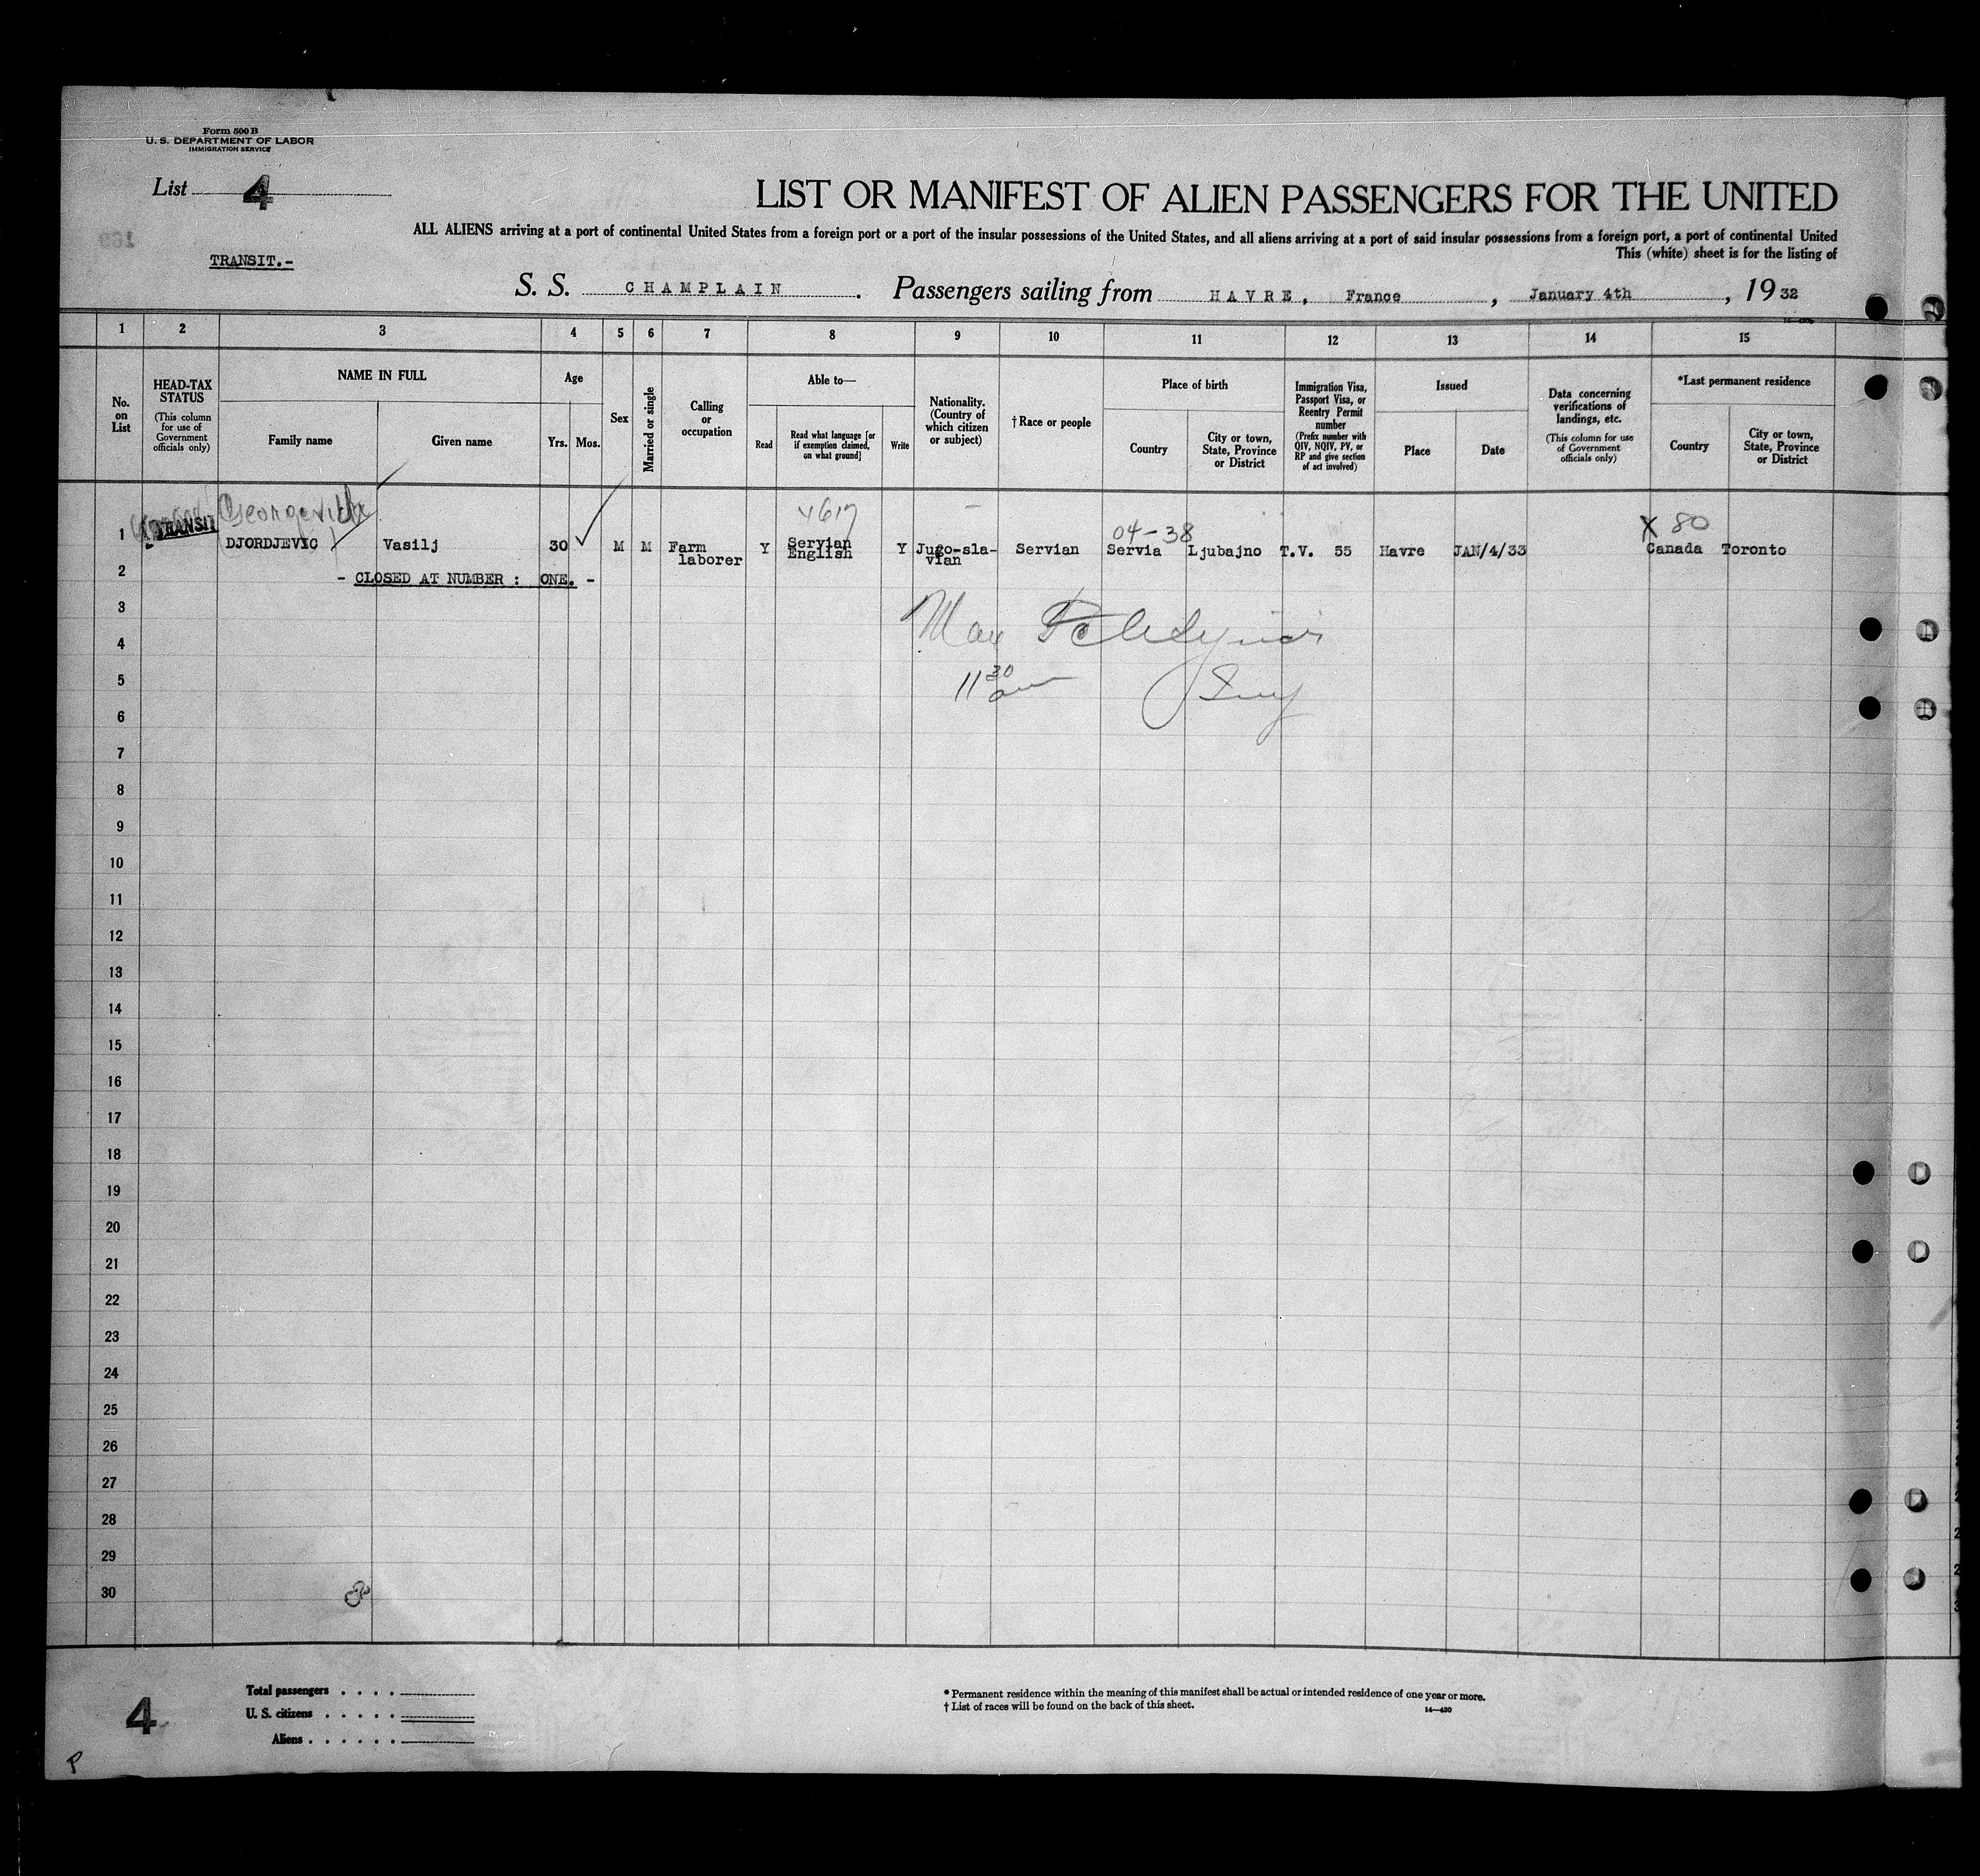 Form 500 B
U. S. DEPARTMENT OF LABOR
IMMIGRATION SERVICE
List 4
LIST OR MANIFEST OF ALIEN PASSENGERS FOR THE UNITED
ALL ALIENS arriving at a port of continental United States from a foreign port or a port of the insular possessions of the United States, and all aliens arriving at a port of said insular possessions from a foreign port, a port of continental United
This (white) sheet is for the listing of
TRANSIT.-
S. S. CHAMPLAIN. Passengers sailing from HAVRE, France, January 4th, 1932
1 2 3 4 5 6 7 8 9 10 11 12 13 14 15
No. on List
HEAD-TAX STATUS (This column for use of Government officials only)
NAME IN FULL
Family name
Given name
Age
Yrs. Mos.
Sex
Married or single
Calling or occupation
Able to—
Read
Read what language [or if exemption claimed, on what ground]
Write
Nationality. (Country of which citizen or subject)
† Race or people
Place of birth
Country
City or town, State, Province or District
Immigration Visa, Passport Visa, or Reentry Permit number (Prefix number with QIV, NQIV, PV, or RP and give section of act involved)
Issued
Place
Date
Data concerning verifications of landings, etc. (This column for use of Government officials only)
*Last permanent residence
Country
City or town, State, Province or District
Georgevich 4617 04-38 X 80
1 TRANSIT DJORDJEVIC Vasilj 30 M M Farm laborer Y Servian English Y Jugo-sla-vian Servian Servia Ljubajno T.V. 55 Havre JAN/4/33 Canada Toronto
2 - CLOSED AT NUMBER : ONE. -
3
4
5 11 30 am
6
7
8
9
10
11
12
13
14
15
16
17
18
19
20
21
22
23
24
25
26
27
28
29
30
4
Total passengers . . . .
U. S. citizens . . . . .
Aliens . . . . . .
* Permanent residence within the meaning of this manifest shall be actual or intended residence of one year or more.
† List of races will be found on the back of this sheet.
14—430
P